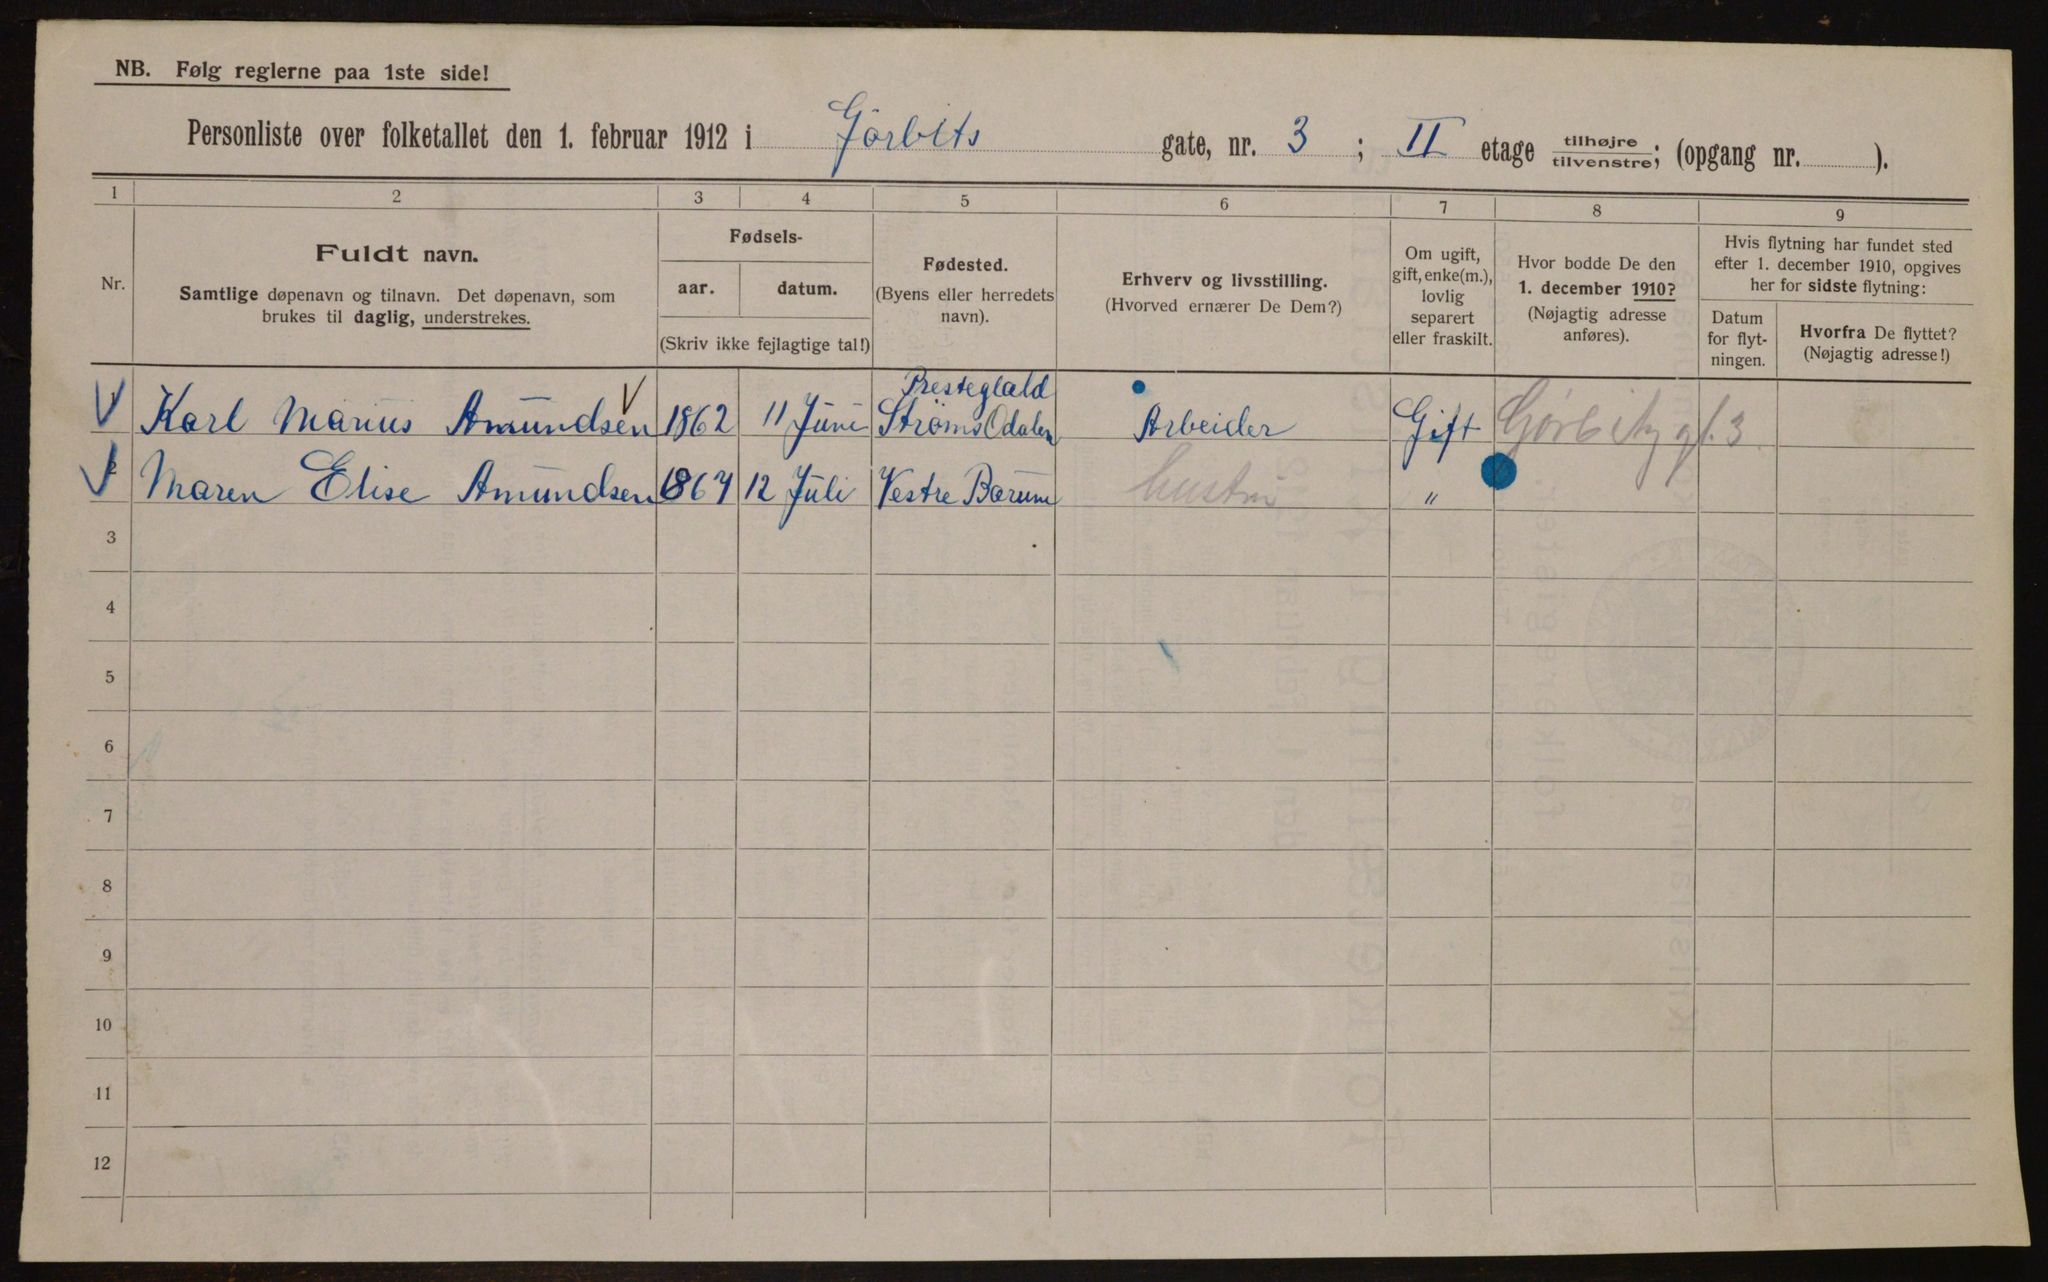 NB. Følg reglerne paa 1ste side!
Personliste over folketallet den 1. februar 1912 i Gjørbits gate, nr. 3 ; II etage tilhøjre tilvenstre; (opgang nr. ).
1 2 3 4 5 6 7 8 9
Nr.
Fuldt navn.
Samtlige døpenavn og tilnavn. Det døpenavn, som
brukes til daglig, understrekes.
Fødsels-
aar. datum.
(Skriv ikke fejlagtige tal!)
Fødested.
(Byens eller herredets
navn).
Erhverv og livsstilling.
(Hvorved ernærer De Dem?)
Om ugift,
gift, enke(m.),
lovlig
separert
eller fraskilt.
Hvor bodde De den
1. december 1910?
(Nøjagtig adresse
anføres).
Hvis flytning har fundet sted
efter 1. december 1910, opgives
her for sidste flytning:
Datum
for flyt-
ningen.
Hvorfra De flyttet?
(Nøjagtig adresse!)
Prestegjæld
1 Karl Marius Amundsen 1862 11 Juni Strøms Odalen Arbeider Gift Gørbitz gt. 3
2 Maren Elise Amundsen 1867 12 Juli Vestre Bærum hustru "
3
4
5
6
7
8
9
10
11
12